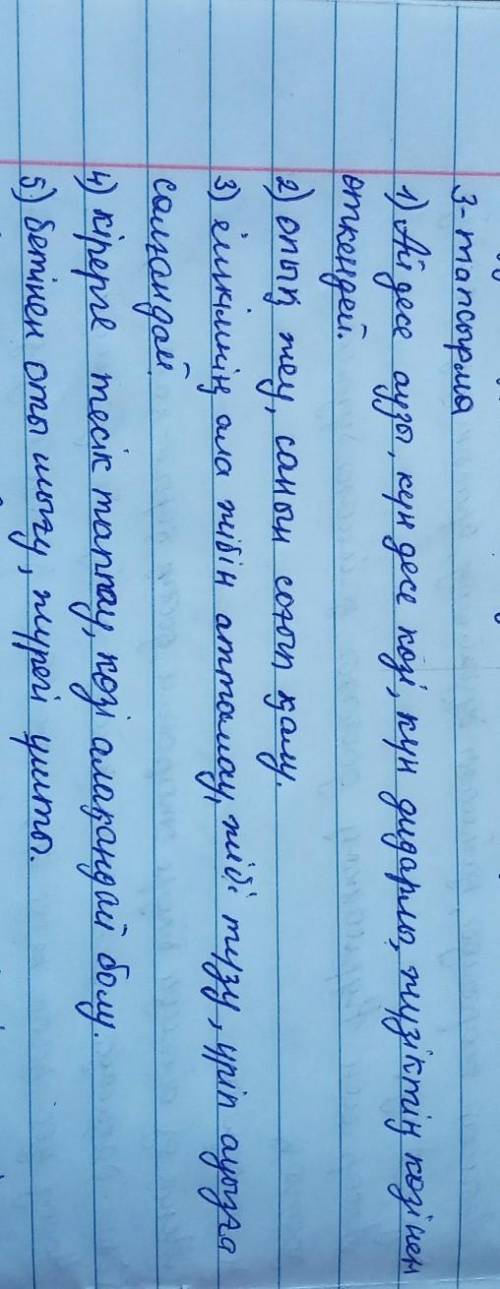 3-тапсырма
1) Ай десе аузы, күн десе көзі, күн дидарлы, жүзіктің көзінен
өткендей.
2) опық жеу, саны соғып қалу.
3) ешкімнің ала жібін аттамау, жібі түзу, үріп ауызға
салғандай.
4) кірерге тесік таппау, көзі алақандай болу.
5) бетінен оты шығу, жүрегі ұшты.